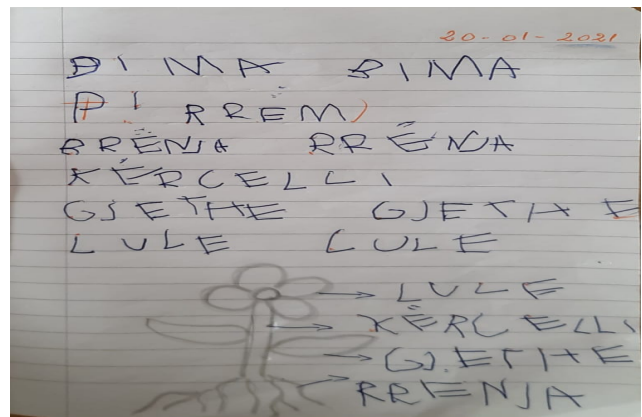 20-01-2021
BIMA BIMA
P! RRËM)
BRËNJA RRËNJA
KËRCELLI
GJETHE GJETHE
LULE LULE
LULE
KËRCELLI
GJETHE
RRENJA